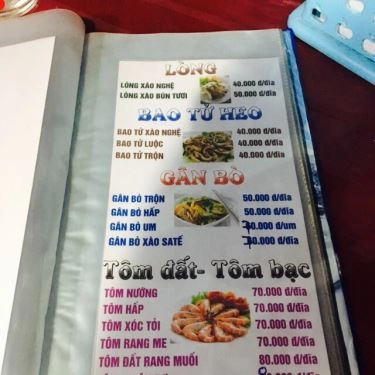 LÒNG
LÒNG XÀO NGHỆ 40.000 đ/dĩa
LÒNG XÀO BÚN TƯƠI 50.000 đ/dĩa
BAO TỬ HEO
BAO TỬ XÀO NGHỆ 40.000 đ/dĩa
BAO TỬ LUỘC 40.000 đ/dĩa
BAO TỬ TRỘN 40.000 đ/dĩa
GÂN BÒ
GÂN BÒ TRỘN 50.000 đ/dĩa
GÂN BÒ HẤP 50.000 đ/dĩa
GÂN BÒ UM 0.000 đ/um
GÂN BÒ XÀO SATẾ 0.000 đ/dĩa
Tôm đất- Tôm bạc
TÔM NƯỚNG 70.000 đ/dĩa
TÔM HẤP 70.000 đ/dĩa
TÔM XÓC TỎI 70.000 đ/dĩa
TÔM RANG ME 70.000 đ/dĩa
TÔM ĐẤT RANG MUỐI 80.000 đ/dĩa